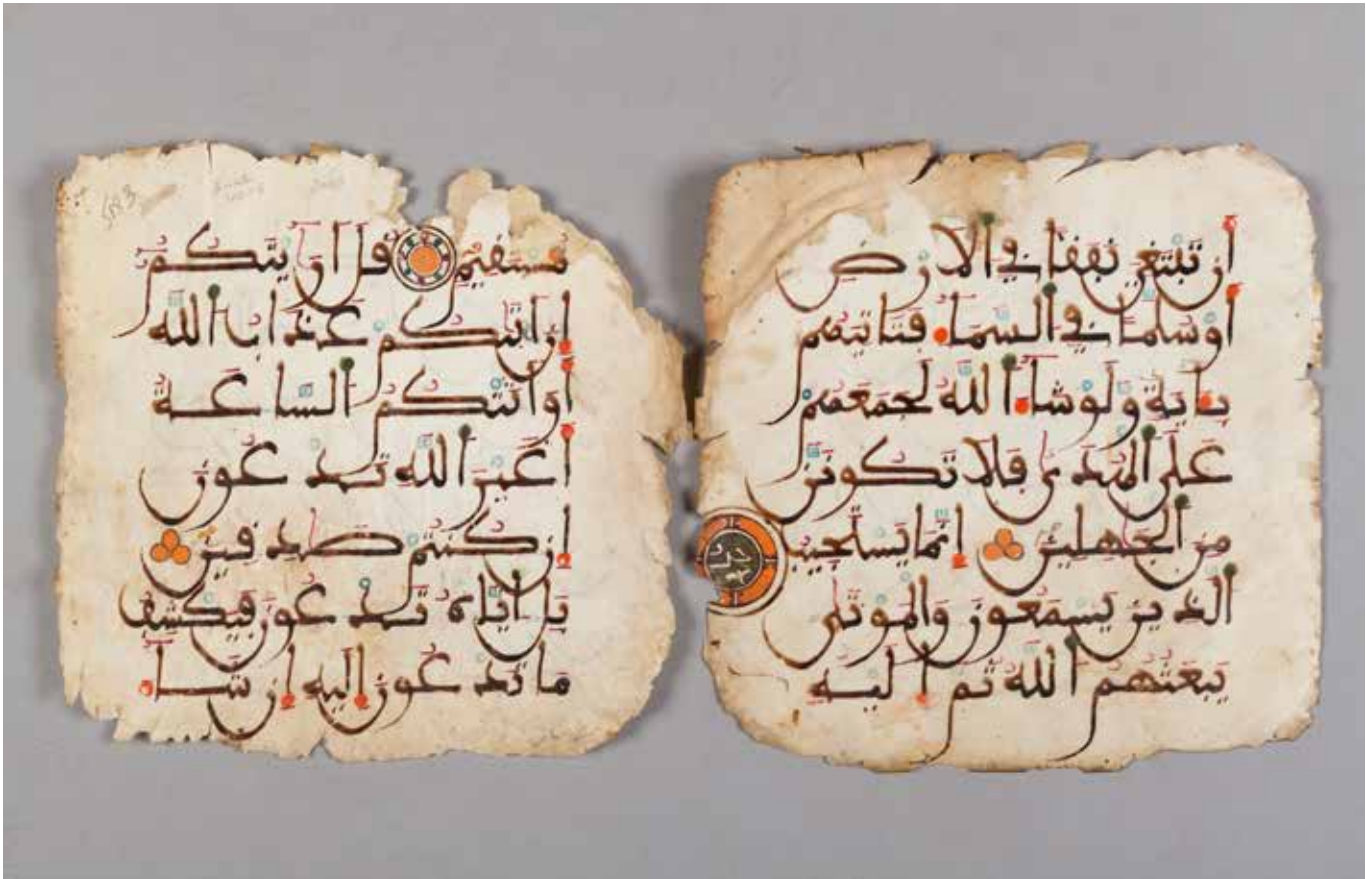 ان تبتغي نفقا في الارض
او سلما في السماء فتاتيهم
باية ولو شاء الله لجمعهم
على الهدى فلا تكونن
من الجهلين انما يستجيب
الذين يسمعون والموتى
يبعثهم الله ثم اليه
مستقيم قل اريتكم
ان اتيكم عذاب الله
او اتتكم الساعة
اغير الله تدعون
ان كنتم صدقين
بل اياه تدعون فيكشف
ما تدعون اليه ان شاء